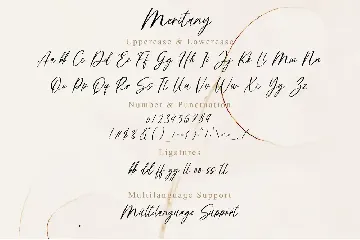 Meritany
Uppercase & Lowercase
Aa Bb Cc Dd Ee Ff Gg Hh Ii Jj Kk Ll Mm Nn
Oo Pp Qq Rr Ss Tt Uu Vv Ww Xx Yy Zz
Number & Punctuation
0123456789
Ligatures
bb dd ff gg ll oo ss tt
Multilanguage Support
Multilanguage Support